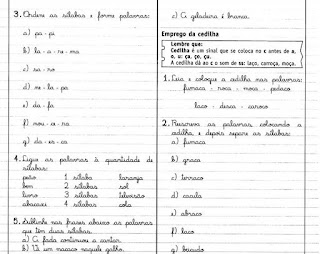 3. Ordene as sílabas e forme palavras:
a) pa - pi
b) la - a - re - ma
c) sa - no
d) ne - la - pa
e) da - fa
f) nou - ra
g) da - es - ca
4. Ligue as palavras à quantidade de
sílabas:
peão 1 sílaba laranja
bom 2 sílabas sol
livro 3 sílabas televisão
abacaxi 4 sílabas cola
5. Sublinhe nas frases abaixo as palavras
que têm duas sílabas.
a) A fada continuou a cantar.
b) Vi um macaco naquele galho.
c) A geladeira é branca.
Emprego da cedilha
Lembre que:
Cedilha é um sinal que se coloca no c antes de a,
o, u: ça, ço, çu.
A cedilha dá ao c o som de ss: laço, carroça, moça.
1. Leia e coloque a cedilha nas palavras:
fumaca - roca - moca - pedaco
laco - desca - caroco
2. Reescreva as palavras colocando a
cedilha, e depois separe as sílabas:
a) fumaca
b) graca
c) terraco
d) cacula
e) abraco
f) laco
g)